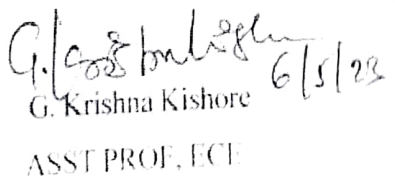 6/5/23
G. Krishna Kishore
ASST PROF, ECE